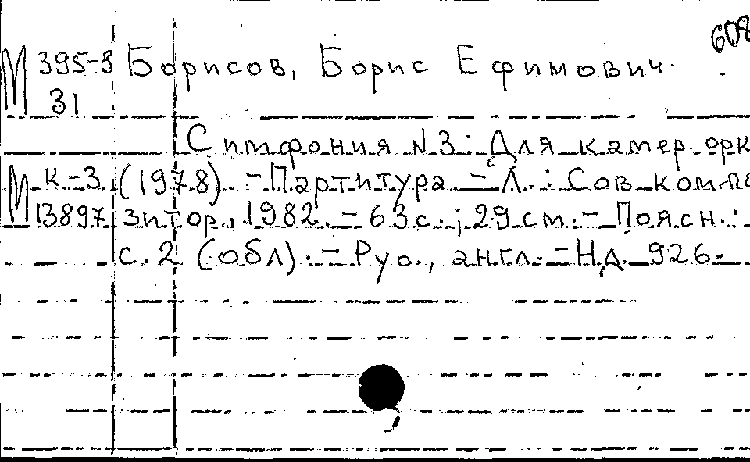 608
М 395-3 Борисов, Борис Ефимович.
31
Симфония №3: Для камер. орк
М К-3 (1978). - Партитура. - Л.: Сов. компо
13897 зитор, 1982. - 63с.; 29см. - Поясн.:
с. 2 (обл). - Рус., англ. - Н.д. 926.